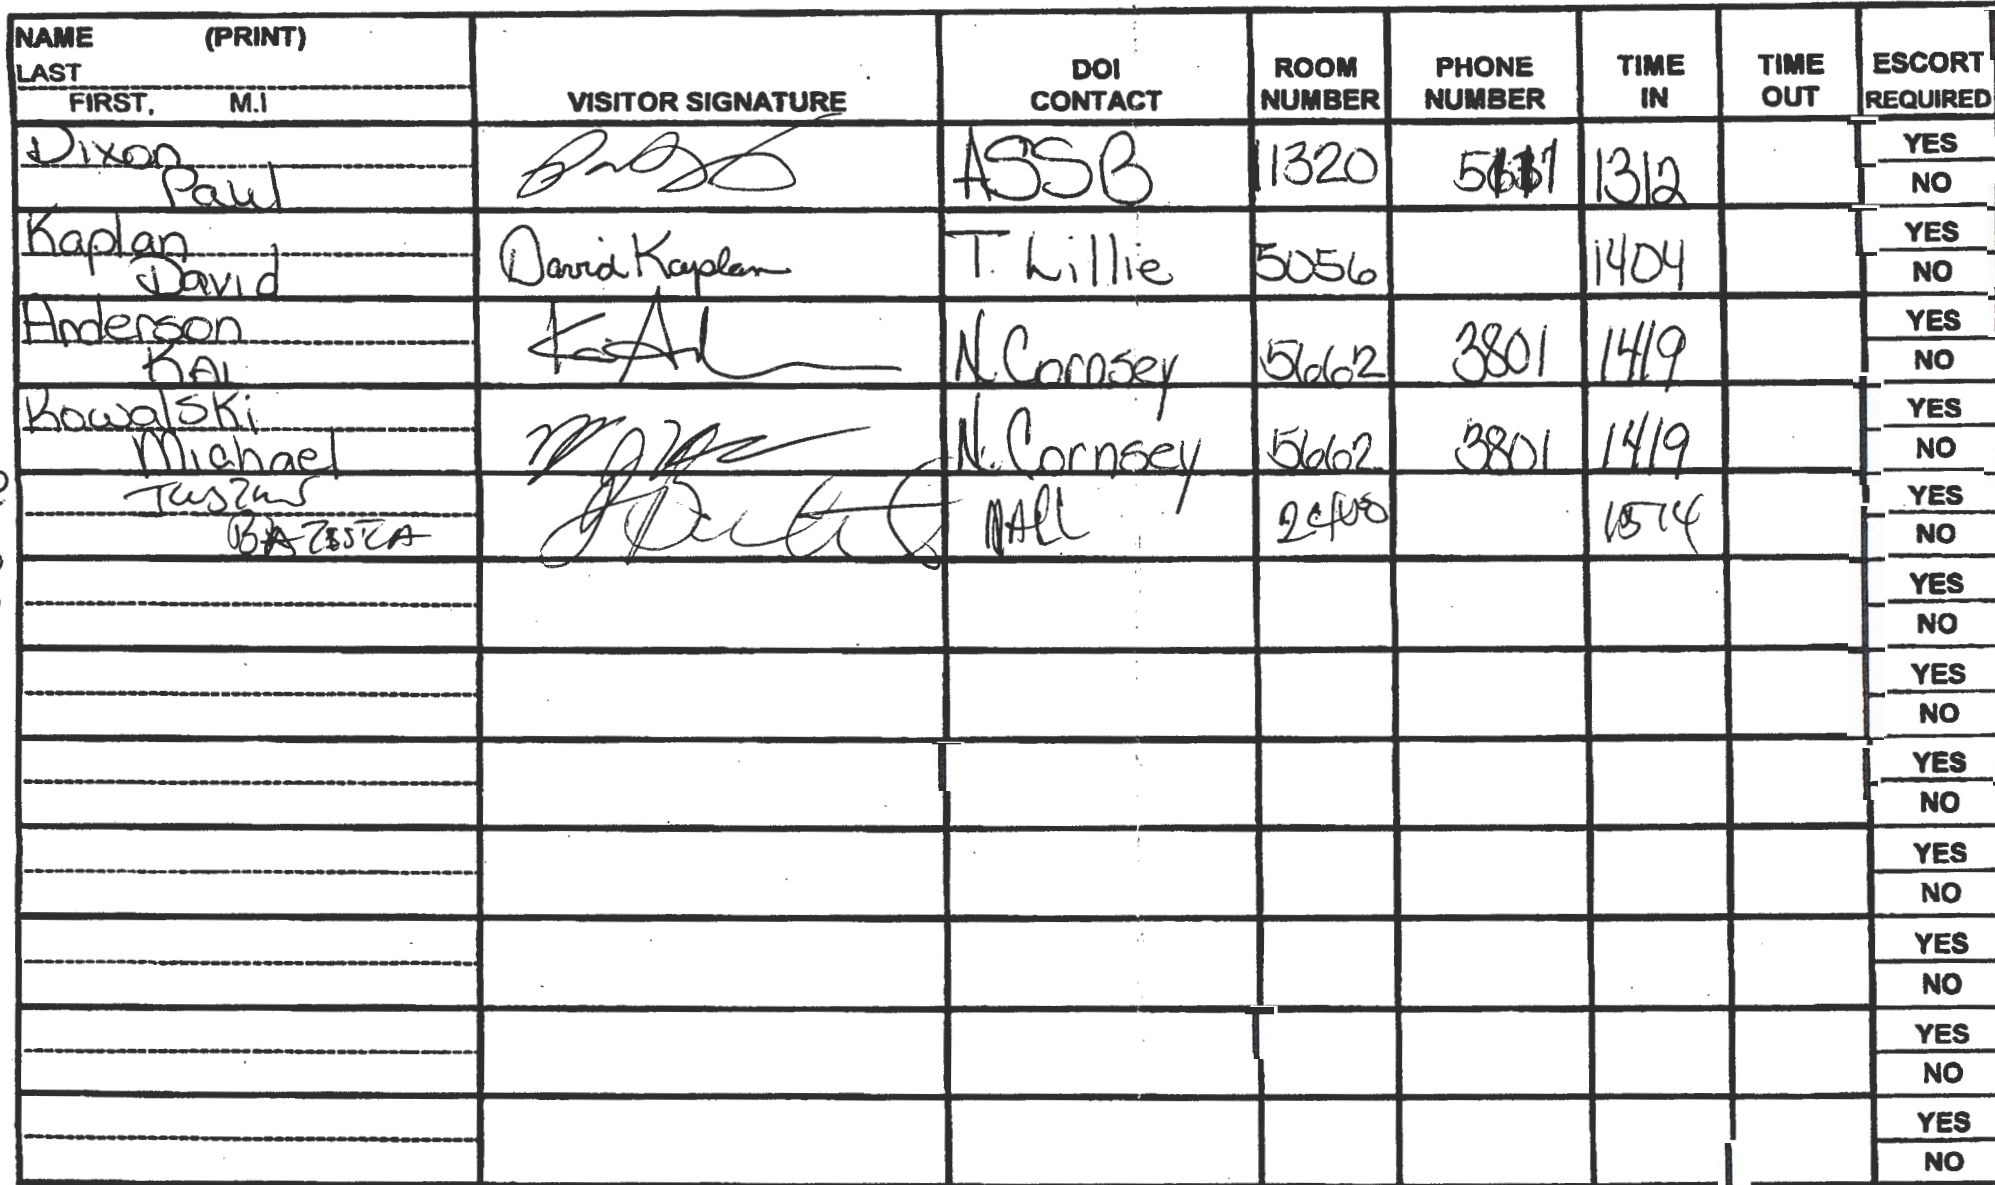 NAME (PRINT)
LAST
FIRST, M.I
VISITOR SIGNATURE
DOI CONTACT
ROOM NUMBER
PHONE NUMBER
TIME IN
TIME OUT
ESCORT REQUIRED
Dixon
Paul
ASSB 11320 1312
YES
NO
Kaplan
David
David Kaplan T. Lillie 5056 1404
YES
NO
Anderson
KAI
N. Cornsey 5662 3801 1419
YES
NO
Kowalski
Michael
N. Cornsey 5662 3801 1419
YES
NO
NALL 1514
YES
NO
YES
NO
YES
NO
YES
NO
YES
NO
YES
NO
YES
NO
YES
NO